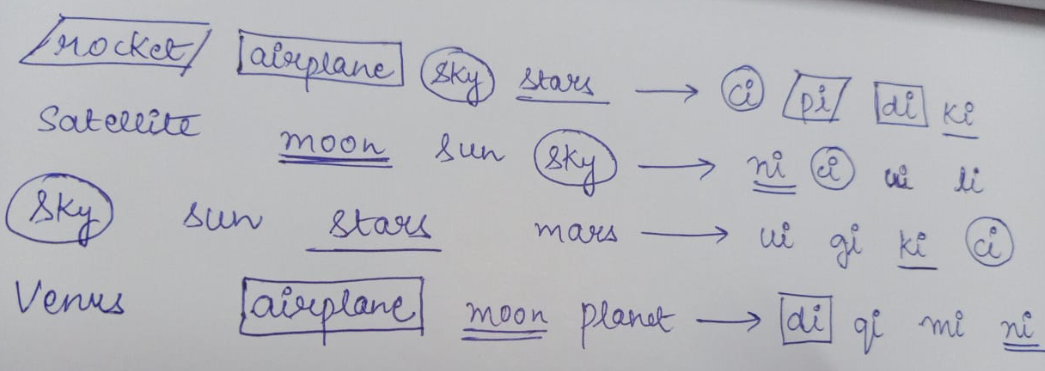 rocket airplane sky stars → ci pi di ki
Satellite moon sun sky → ni ci ui li
sky sun stars mars → ui gi ki ci
Venus airplane moon planet → di qi mi ni